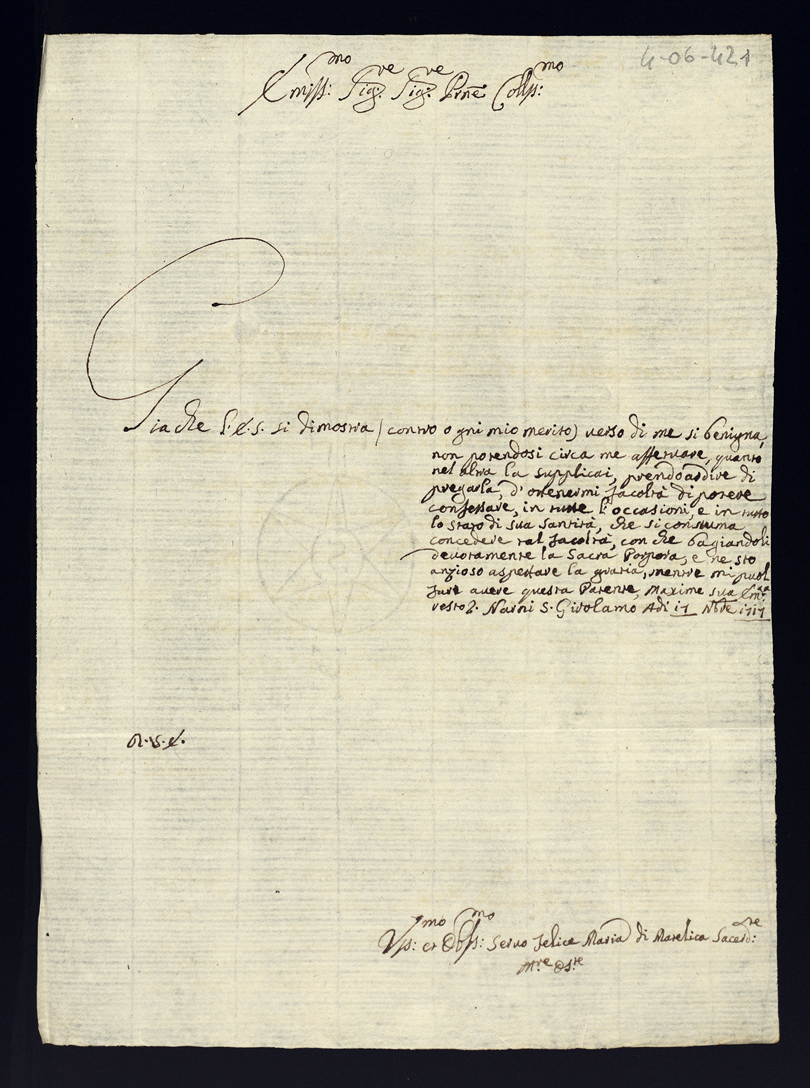 4-06-421
Emiss:mo Sig:re Sig:re Prne Collss:mo
Gia che S.E.S. si dimostra (contro ogni mio merito) verso di me si benigna,
non potendosi circa me affettuare, quanto
nel altra la supplicai, prendo ardire di
pregarla, d'ottenermi facoltà di potere
confessare, in tutte l'occasioni, e in tutto
lo stato di sua Santità, che si constuma
concedere tal facoltà, con che bagiandoli
devotamente la Sacra Porpora, e ne sto
anzioso aspettare la gratia, mentre mi puol
fare avere questa Patente, Maxime sua Em:za
vesto2. Narni S. Girolamo Adi 17 Nbre 1717
V.S.E.
Vss:mo et Obss:mo Servo Felice Maria di Matelica Sacerd:te
M:re Os:te